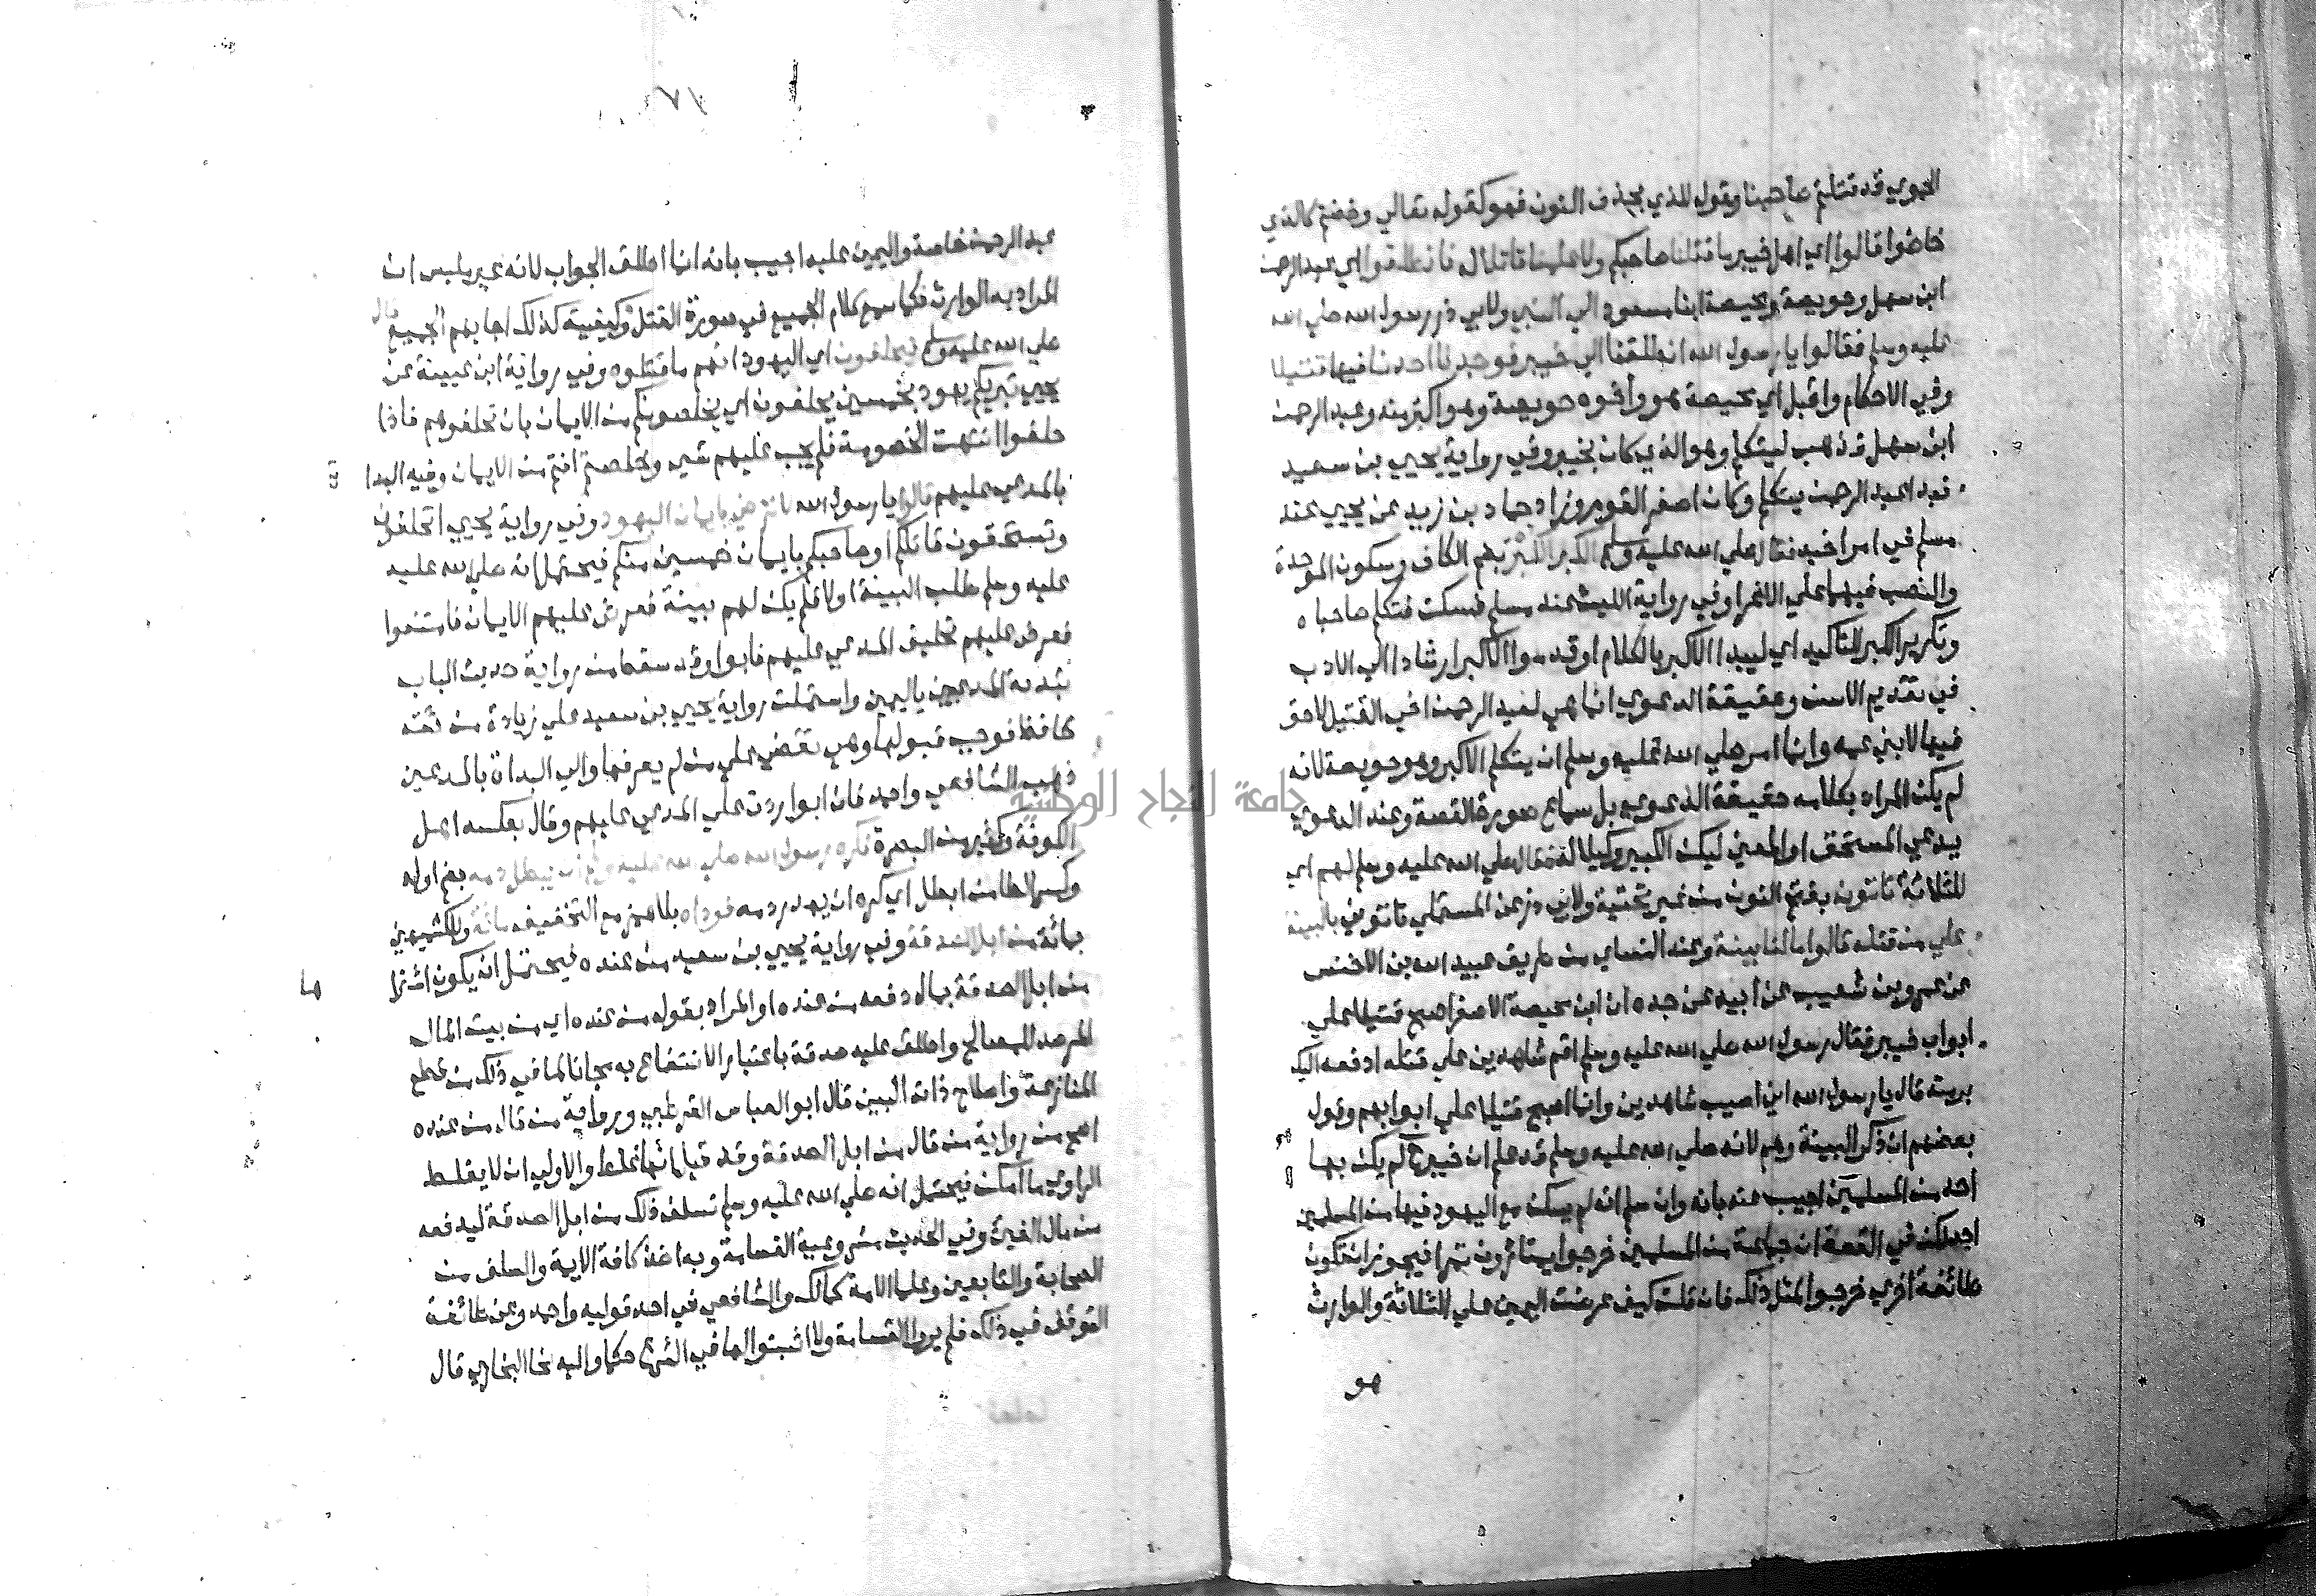 الحموي قد قتلتم صاحبنا وقوله للذي بحذف النون فهو كقوله تعالي وخضتم كالذي
خاضوا قالوا اي اهل خيبر ما قتلنا صاحبكم ولا علمنا قاتلا قال فانطلقوا اي عبد الرحمن
ابن سهل وحويصة ومحيصة ابنا مسعود الي النبي ولابي ذر رسول الله صلي الله
عليه وسلم فقالوا يا رسول الله انطلقنا الي خيبر فوجدنا احدنا فيها قتيلا
وفي الاحكام واقبل اي محيصة هو واخوه حويصة وهو اكبر منه وعبد الرحمن
ابن سهل فذهب ليتكلم وهو الذي كان بخيبر وفي رواية يحيي بن سعيد
فبدا عبد الرحمن يتكلم وكان اصغر القوم وزاد حماد بن زيد عن يحيي عند
مسلم في امر اخيه فقال صلي الله عليه وسلم الكبر الكبر بضم الكاف وسكون الموحدة
والنصب فيهما علي الاغرا وفي رواية الليث عند مسلم فسكت فتكلم صاحباه
وتكرير الكبر للتاكيد اي ليبدا الاكبر بالكلام او قدموا الاكبر ارشادا الي الادب
في تقديم الاسن وحقيقة الدعوي انما هي لعبد الرحمن اخي القتيل لا حق
فيها لابني عمه وانما امر صلي الله عليه وسلم ان يتكلم الاكبر وهو حويصة لانه
لم يكن المراد بكلامه حقيقة الدعوي بل سماع صورة القصة وعند الدعوي
يدعي المستحق او المعني ليكن الكبير وكيلا له فقال صلي الله عليه وسلم لهم اي
للثلاثة تاتون بفتح النون من غير تحتية ولابي ذر عن المستملي تاتوني بالبينة
علي من قتله قالوا ما لنا بينة وعند النساي من طريق عبيد الله بن الاخنس
عن عمرو بن شعيب عن ابيه عن جده ان ابن محيصة الاصغر اصبح قتيلا علي
ابواب خيبر فقال رسول الله صلي الله عليه وسلم اقم شاهدين علي قتله ادفعه اليك
برمته قال يا رسول الله اني اصيب شاهدين وانما اصبح قتيلا علي ابوابهم وقول
بعضهم ان ذكر البينة وهم لانه صلي الله عليه وسلم قد علم ان خيبر ح لم يكن بها
احد من المسلمين اجيب عنه بانه وان سلم انه لم يسكن مع اليهود فيها من المسلمين
احد لكن في القصة ان جماعة من المسلمين خرجوا يمتارون تمرا فيجوز ان تكون
طائفة اخري خرجوا لمثل ذلك فان قلت كيف عرضت اليمين علي الثلاثة والوارث
هو
عبد الرحمن خاصة واليمين عليه اجيب بانه انما اطلق الجواب لانه غير ملبس ان
المراد به الوارث فكما سمع كلام الجميع في صورة القتل وكيفيته كذلك اجابهم الجميع قال
صلي الله عليه وسلم فيحلفون اي اليهود انهم ما قتلوه وفي رواية ابن عيينة عن
يحيي تبريكم يهود بخمسين يحلفون اي يخلصونكم من الايمان بان تحلفوهم فاذا
حلفوا انتهت الخصومة فلم يجب عليهم شي وخلصتم انتم من الايمان وفيه البداة
بالمدعي عليهم قالوا يا رسول الله لا نرضي بايمان اليهود وفي رواية يحيي اتحلفون
وتستحقون قاتلكم او صاحبكم بايمان خمسين منكم فيحتمل انه صلي الله عليه
عليه وسلم طلب البينة اولا فلم يكن لهم بينة فعرض عليهم الايمان فامتنعوا
فعرض عليهم تحليف المدعي عليهم فابوا وقد سقط من رواية حديث الباب
تبدئة المدعين باليمين واشتملت رواية يحيي بن سعيد علي زيادة من ثقة
حافظ فوجب قبولها وهي تقضي علي من لم يعرفها والي البداة بالمدعين
ذهب الشافعي واحمد فان ابوا ردت علي المدعي عليهم وقال بعكسه اهل
الكوفة وكثير من البصرة فكره رسول الله صلي الله عليه وسلم ان يبطل دمه بضم اوله
وكسر الطا من ابطل اي كره ان يهدر دمه فوداه بلا همز مع التخفيف مائة وللكشميهني
بمائة من ابل الصدقة وفي رواية يحيي بن سعيد من عنده فيحتمل ان يكون اشتراها
من ابل الصدقة بمال دفعه من عنده او المراد بقوله من عنده اي من بيت المال
المرصد للمصالح واطلق عليه صدقة باعتبار الانتفاع به مجانا لما في ذلك من قطع
المنازعة واصلاح ذات البين قال ابو العباس القرطبي ورواية من قال من عنده
اصح من رواية من قال من ابل الصدقة وقد قيل انها غلط والاولي ان لا يغلط
الراوي ما امكن فيحتمل انه صلي الله عليه وسلم تسلف ذلك من ابل الصدقة ليدفعه
من مال الفيئ وفي الحديث مشروعية القسامة وبه اخذ كافة الايمة والسلف من
الصحابة والتابعين وعلما الامة كمالك والشافعي في احد قوليه واحمد وعن طائفة
التوقف في ذلك فلم يروا القسامة ولا اثبتوا لها في الشرع حكما واليه نحا البخاري قال